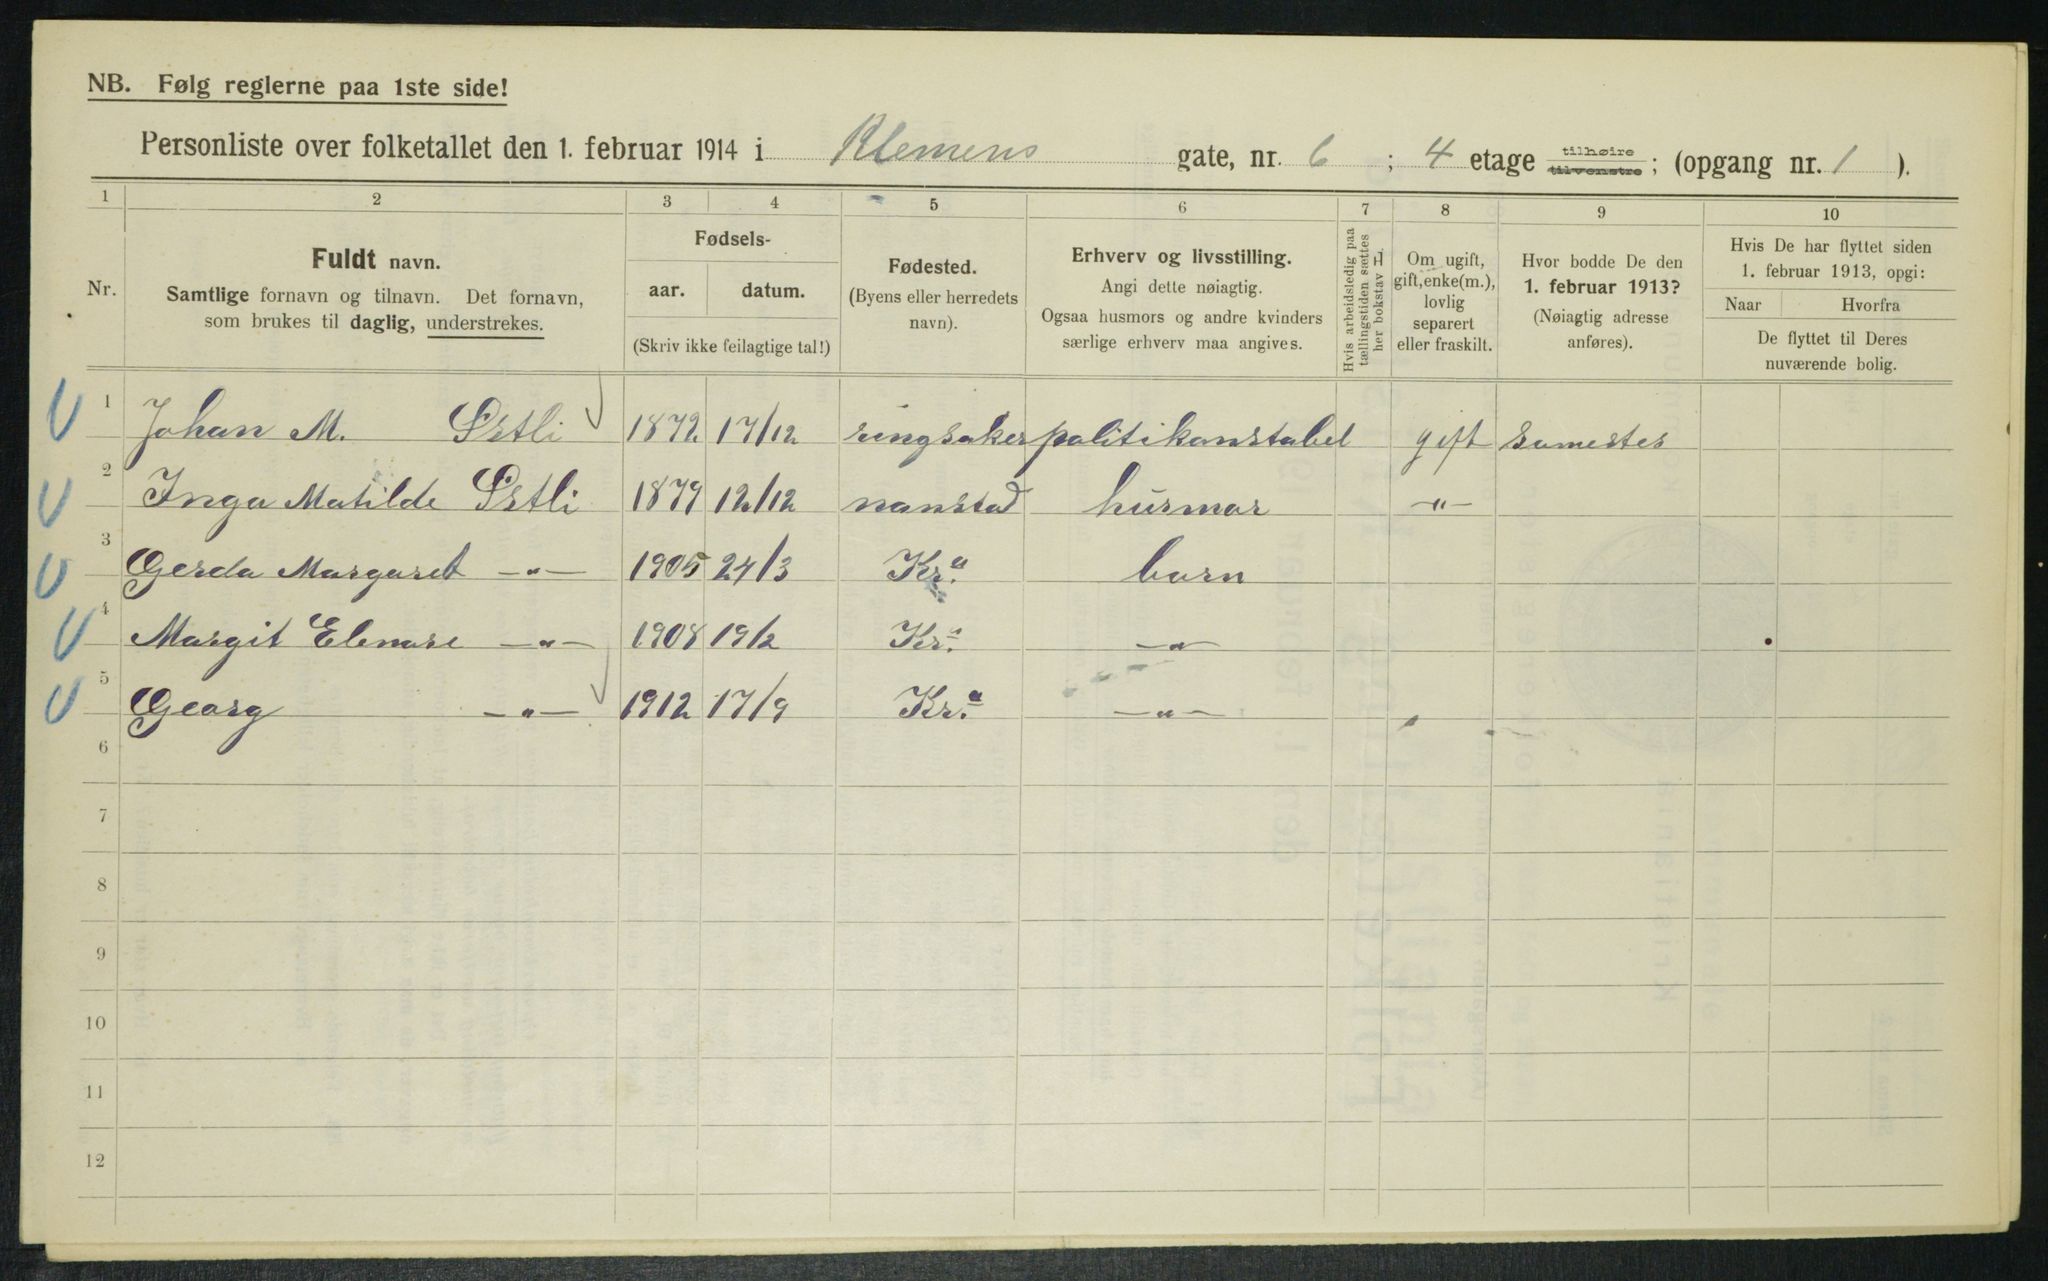 NB. Følg reglerne paa 1ste side!
Personliste over folketallet den 1. februar 1914 i Klemens gate, nr. 6 ; 4 etage tilhøire tilvenstre ; (opgang nr. 1 ).
1 2 3 4 5 6 7 8 9 10
Nr.
Fuldt navn.
Samtlige fornavn og tilnavn. Det fornavn,
som brukes til daglig, understrekes.
Fødsels-
aar. datum.
(Skriv ikke feilagtige tal!)
Fødested.
(Byens eller herredets
navn).
Erhverv og livsstilling.
Angi dette nøiagtig.
Ogsaa husmors og andre kvinders
særlige erhverv maa angives.
Hvis arbeidsledig paa
tællingstiden sættes
her bokstav L.
Om ugift,
gift, enke(m.),
lovlig
separert
eller fraskilt.
Hvor bodde De den
1. februar 1913?
(Nøiagtig adresse
anføres).
Hvis De har flyttet siden
1. februar 1913, opgi:
Naar Hvorfra
De flyttet til Deres
nuværende bolig.
1 Johan M. Østli 1872 17/12 ringsaker politikonstabel gift samestes
2 Inga Matilde Østli 1879 12/12 nanstad husmor -"-
3 Gerda Margaret -"- 1905 24/3 Kr.a barn
4 Margit Elenore -"- 1908 19/2 Kr.a -"-
5 Georg -"- 1912 17/9 Kr.a -"-
6
7
8
9
10
11
12